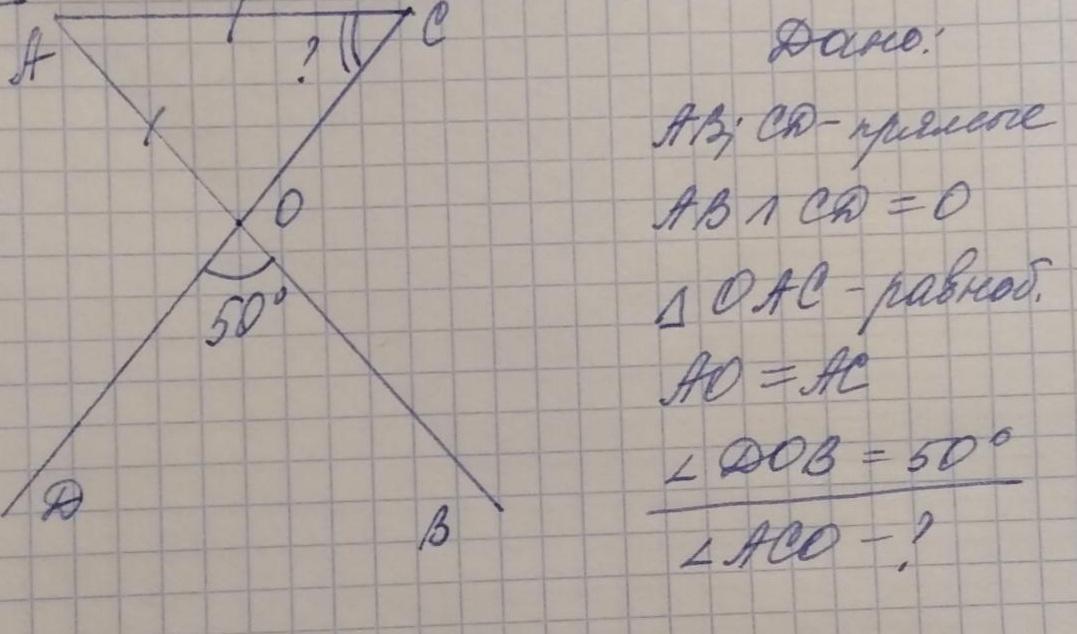 A
C
?
O
50°
D
B
Дано:
AB; CD - прямые
AB ∩ CD = O
△ OAC - равноб.
AO = AC
∠ DOB = 50°
∠ ACO - ?